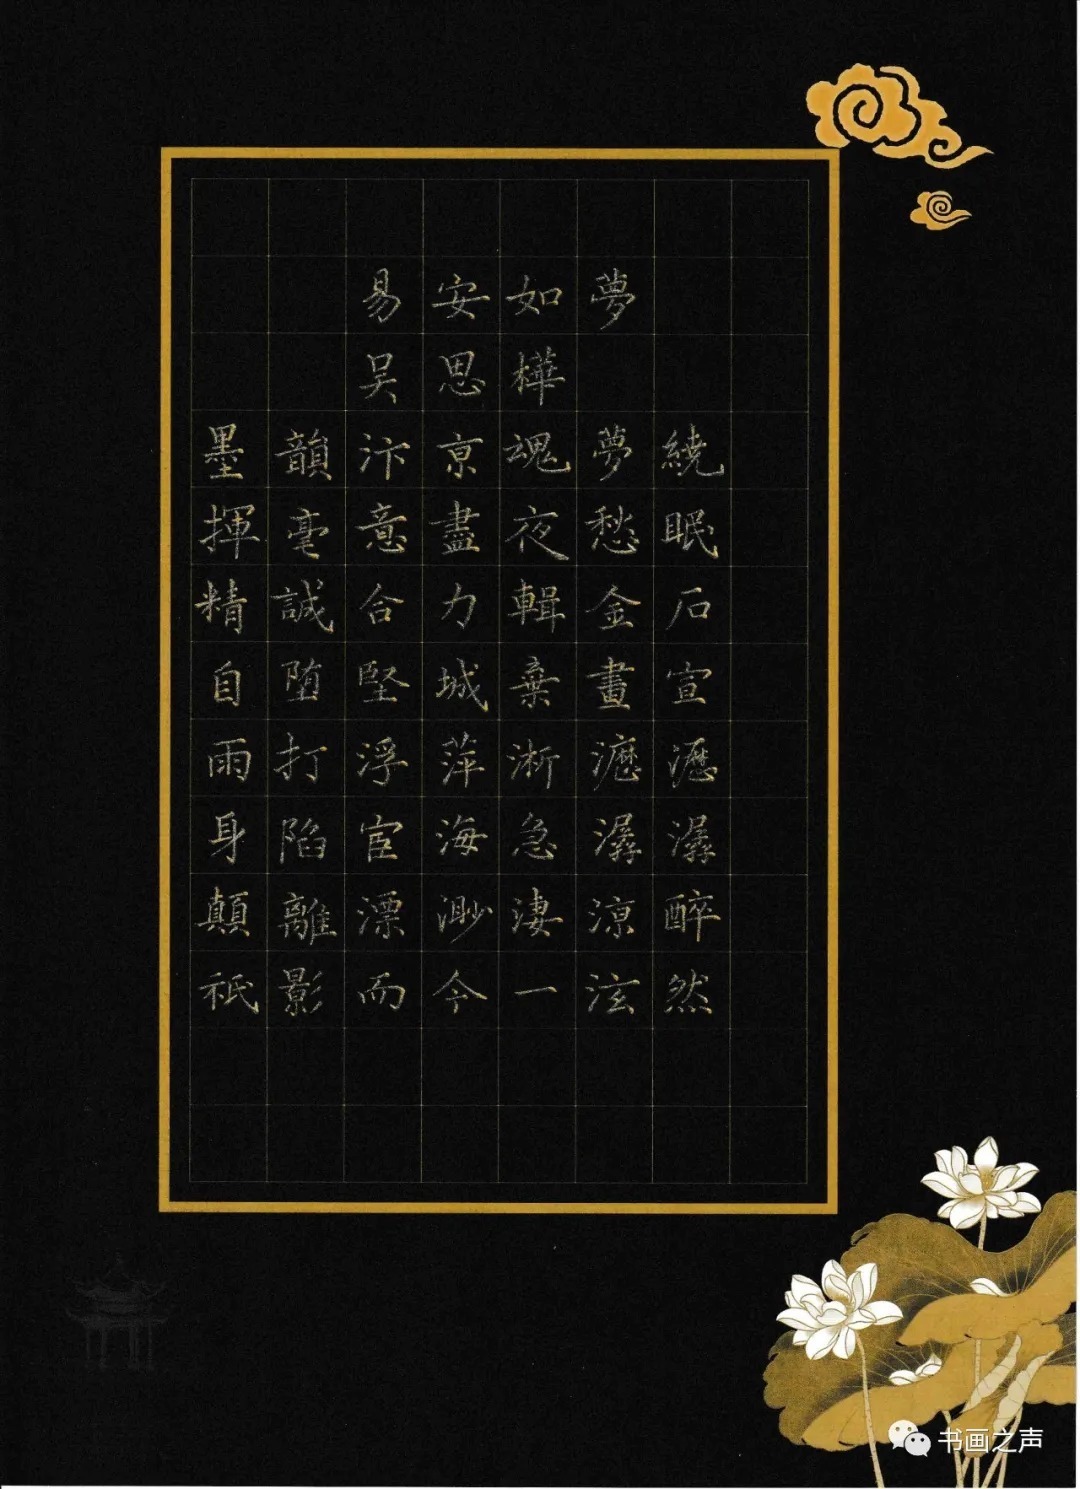 易安如夢
吴思樺
墨韻汴京魂夢繞
揮毫意盡夜愁眠
精誠合力輯金石
自堕堅城棄畫宣
雨打浮萍淅瀝瀝
身陷宦海急潺潺
顛離漂渺淒涼醉
祇影而今一泫然
书画之声